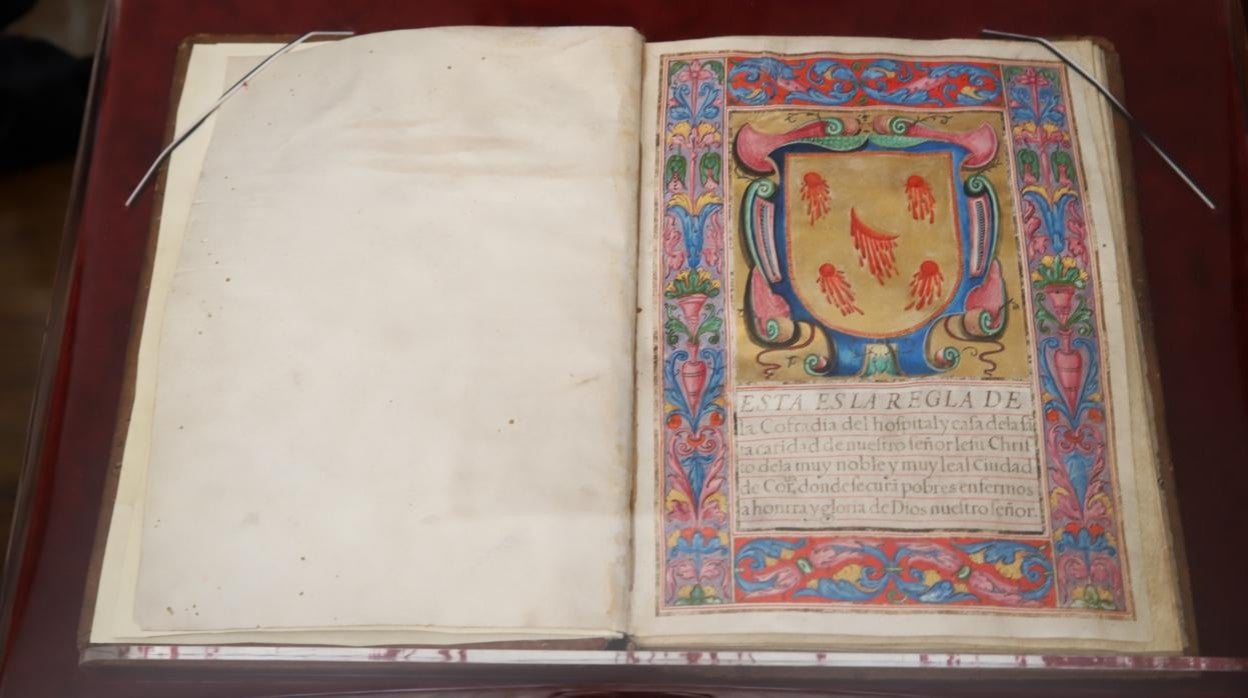 ESTA ES LA REGLA DE
la Cofradia del hospital y casa dela sã
ta caridad de nuestro señor Iesu Chris
to dela muy noble y muy leal Ciudad
de Corᵃ, donde se curã pobres enfermos
a honrra y gloria de Dios nuestro señor.